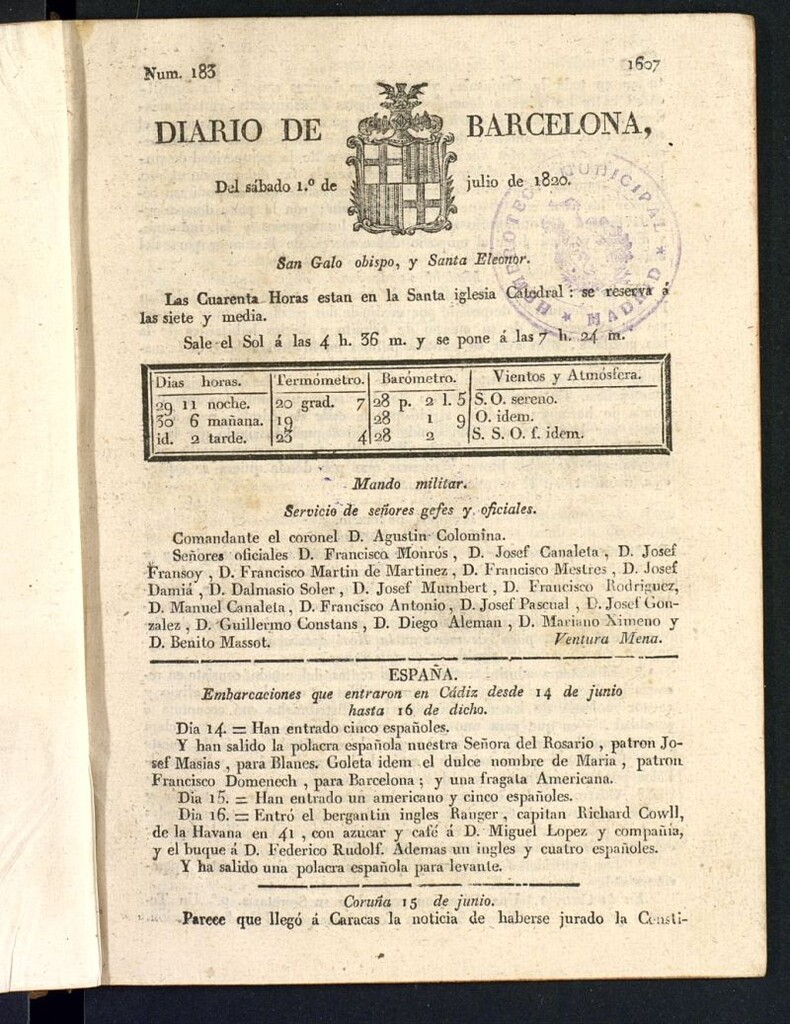 Num. 183
1607
DIARIO DE BARCELONA,
Del sábado 1.º de julio de 1820.
HEMEROTECA MUNICIPAL ★ MADRID ★
San Galo obispo, y Santa Eleonor.
Las Cuarenta Horas estan en la Santa iglesia Catedral : se reserva á
las siete y media.
Sale el Sol á las 4 h. 36 m. y se pone á las 7 h. 24 m.
Dias horas. Termómetro. Barómetro. Vientos y Atmósfera.
29 11 noche. 20 grad. 7 28 p. 2 l. 5 S. O. sereno.
30 6 mañana. 19 28 1 9 O. idem.
id. 2 tarde. 23 4 28 2 S. S. O. f. idem.
Mando militar.
Servicio de señores gefes y oficiales.
Comandante el coronel D. Agustin Colomina.
Señores oficiales D. Francisco Monrós , D. Josef Canaleta , D. Josef
Fransoy , D. Francisco Martin de Martinez , D. Francisco Mestres , D. Josef
Damiá , D. Dalmasio Soler , D. Josef Mumbert , D. Francisco Rodriguez,
D. Manuel Canaleta , D. Francisco Antonio , D. Josef Pascual , D. Josef Gon-
zalez , D. Guillermo Constans , D. Diego Aleman , D. Mariano Ximeno y
D. Benito Massot. Ventura Mena.
ESPAÑA.
Embarcaciones que entraron en Cádiz desde 14 de junio
hasta 16 de dicho.
Dia 14. = Han entrado cinco españoles.
Y han salido la polacra española nuestra Señora del Rosario , patron Jo-
sef Masias , para Blanes. Goleta idem el dulce nombre de Maria , patron
Francisco Domenech , para Barcelona ; y una fragata Americana.
Dia 15. = Han entrado un americano y cinco españoles.
Dia 16. = Entró el bergantin ingles Ranger , capitan Richard Cowll,
de la Havana en 41 , con azucar y café á D. Miguel Lopez y compañia,
y el buque á D. Federico Rudolf. Ademas un ingles y cuatro españoles.
Y ha salido una polacra española para levante.
Coruña 15 de junio.
Parece que llegó á Caracas la noticia de haberse jurado la Consti-